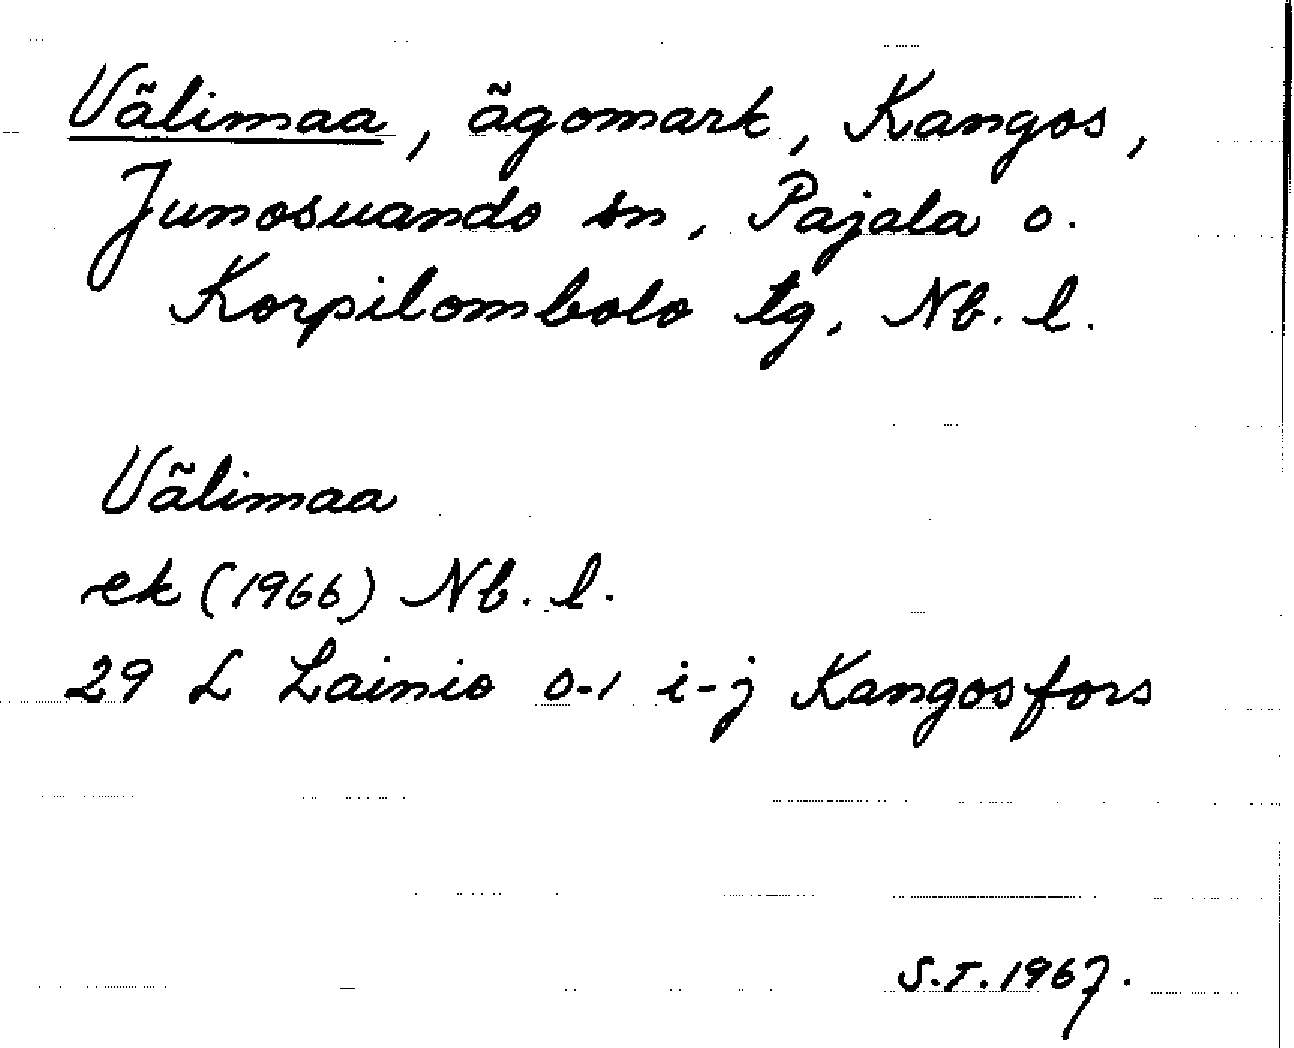 Välimaa, ägomark, Kangos,
Junosuando sn, Pajala o.
Korpilombolo tg, Nb. l.
Välimaa
ek (1966) Nb. l.
29 L Lainio 0-1 i-j Kangosfors
S.T. 1967.